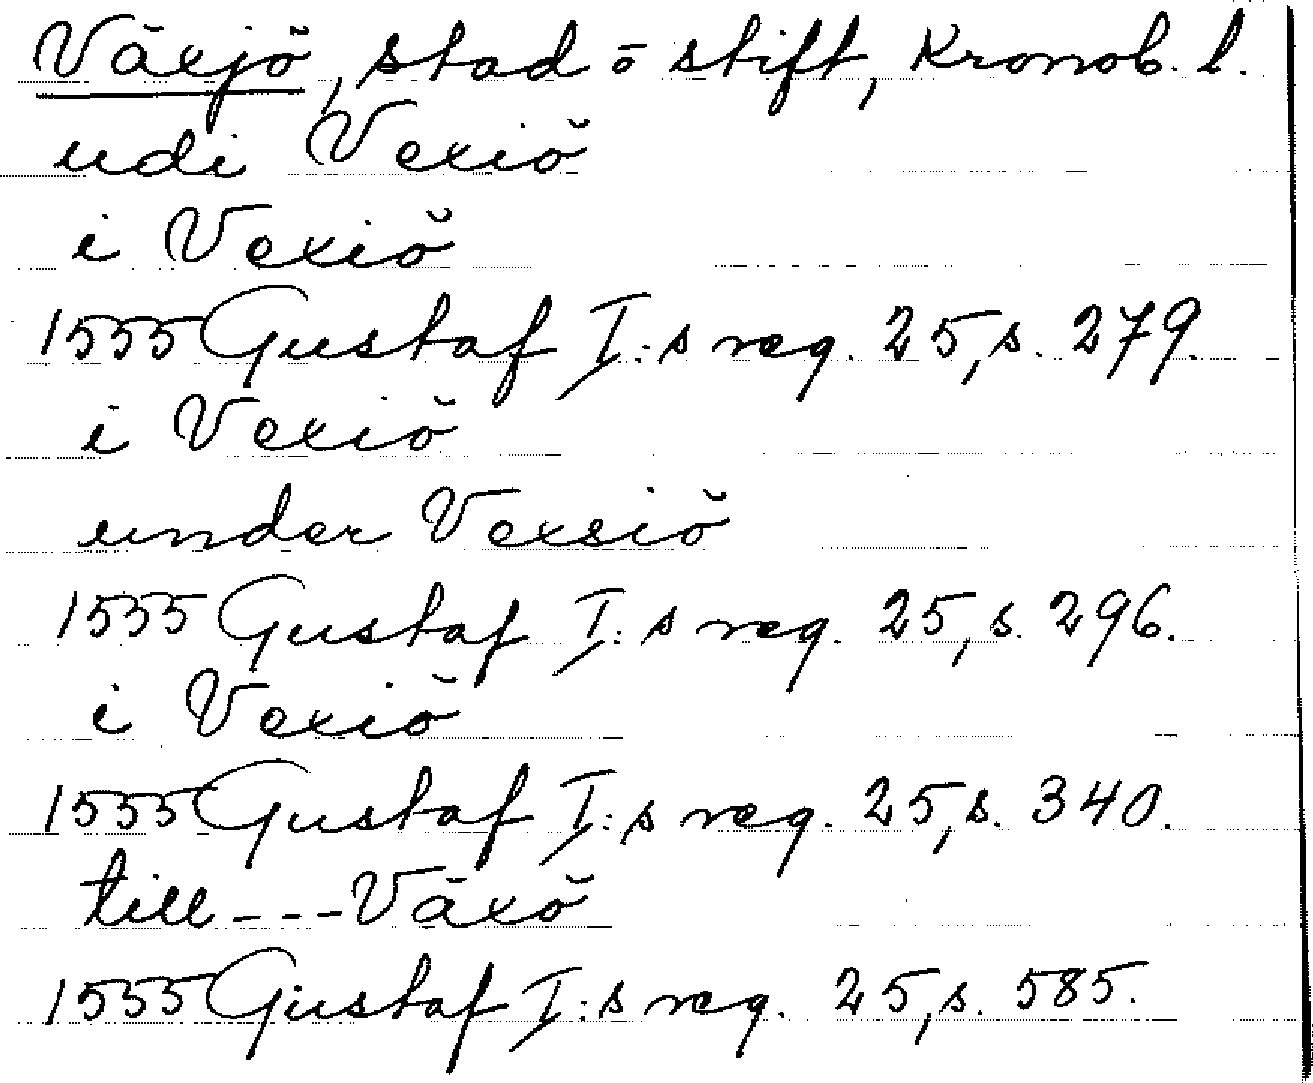 Växjö, stad o stift, Kronob. l.
udi Vexiö
i Vexiö
1555 Gustaf I:s reg. 25, s. 279.
i Vexiö
under Vexsiö
1555 Gustaf I:s reg. 25, s. 296.
i Vexiö
1555 Gustaf I:s reg. 25, s. 340.
till --- Växö
1555 Gustaf I:s reg. 25, s. 585.